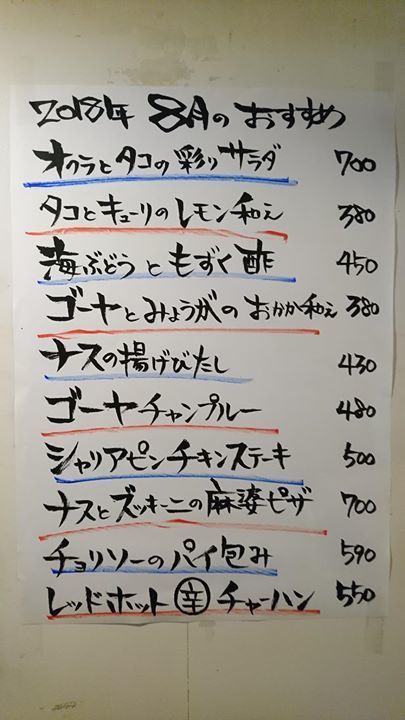 2018年 8月のおすすめ
オクラとタコの彩りサラダ 700
タコとキューリのレモン和え 380
海ぶどうともずく酢 450
ゴーヤとみょうがのおかか和え 380
ナスの揚げびたし 430
ゴーヤチャンプルー 480
シャリアピンチキンステーキ 500
ナスとズッキーニの麻婆ピザ 700
チョリソーのパイ包み 590
レッドホット㊛チャーハン 550